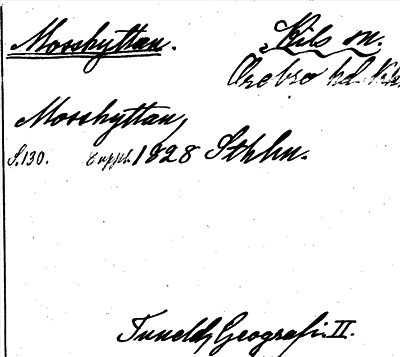 Mosshyttan. Kils sn.
Örebro hd.
Mosshyttan,
S.130. Uppl. 1828 Sthlm.
Tunelds Geografi II.